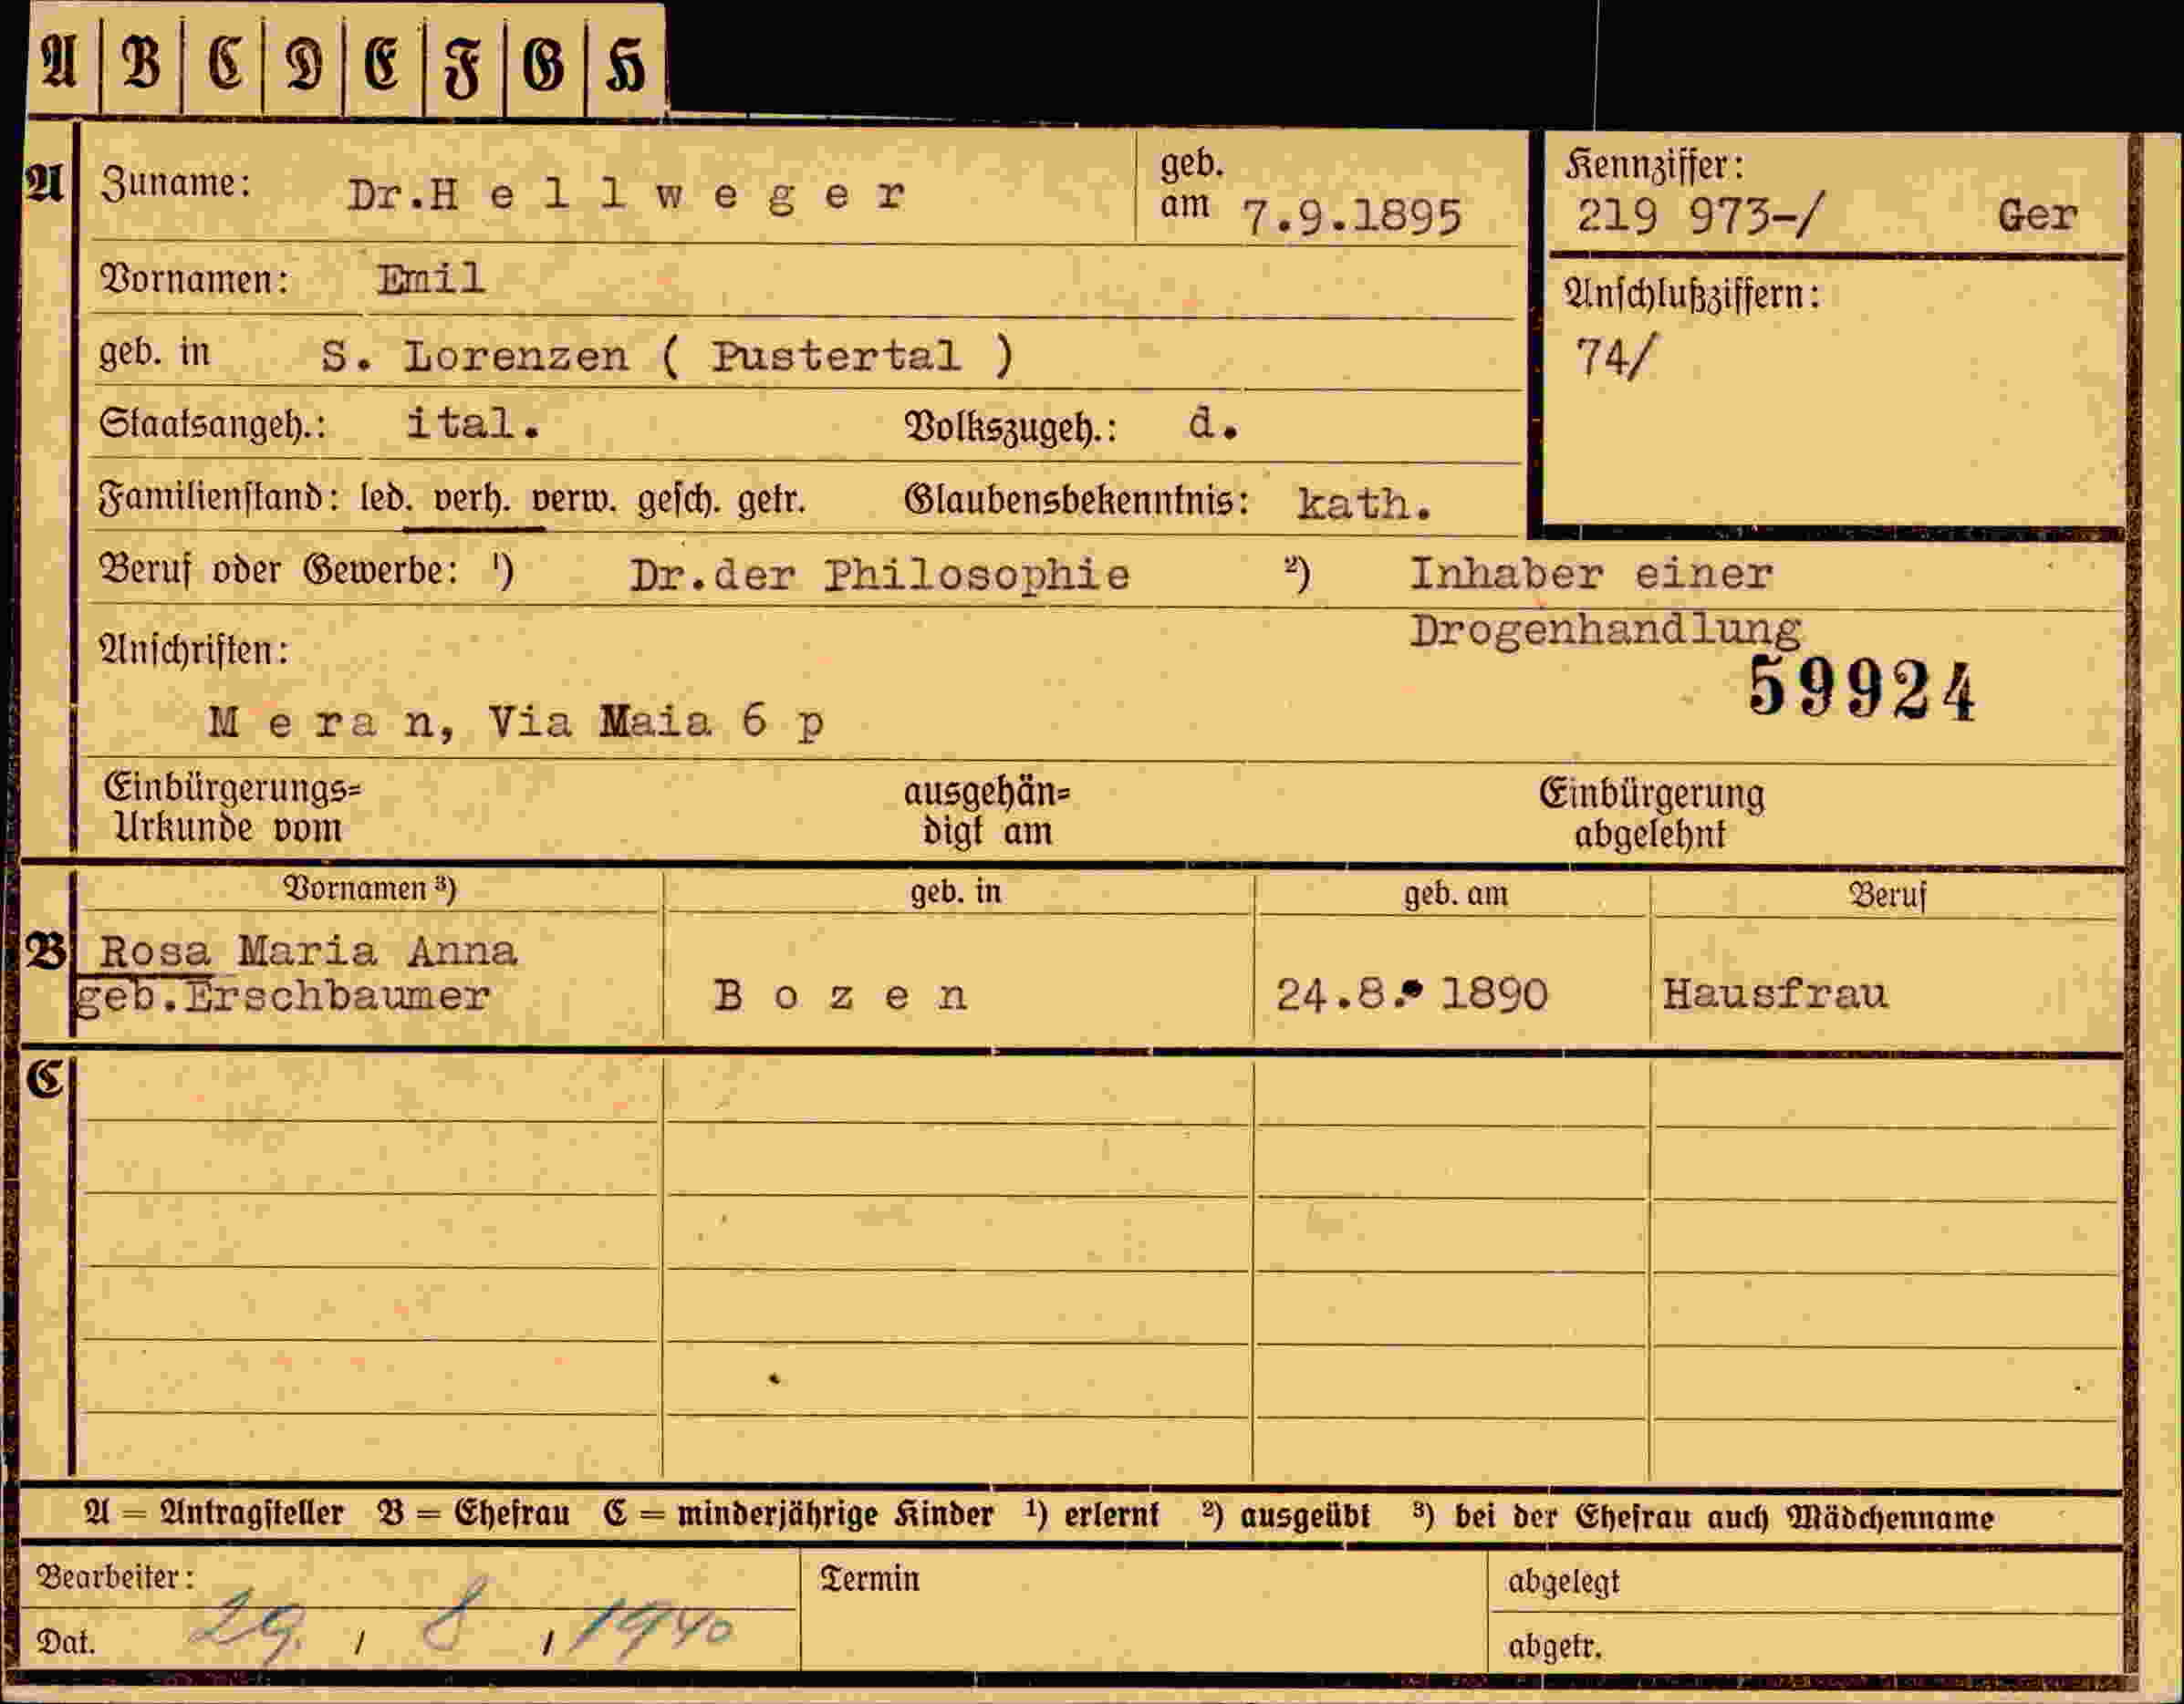 A B C D E F G H
A Zuname: Dr.H e l l w e g e r geb. am 7.9.1895 Kennziffer: 219 973-/ Ger
Vornamen: Emil
Anschlußziffern:
geb. in S. Lorenzen ( Pustertal ) 74/
Staatsangeh.: ital. Volkszugeh.: d.
Familienstand: led. verh. verw. gesch. getr. Glaubensbekenntnis: kath.
Beruf oder Gewerbe: ¹) Dr.der Philosophie ²) Inhaber einer
Drogenhandlung
Anschriften:
59924
M e r a n, Via Maia 6 p
Einbürgerungs= ausgehän= Einbürgerung
Urkunde vom digt am abgelehnt
Vornamen ³) geb. in geb. am Beruf
B Rosa Maria Anna
geb.Erschbaumer B o z e n 24.8. 1890 Hausfrau
C
A = Antragsteller B = Ehefrau C = minderjährige Kinder ¹) erlernt ²) ausgeübt ³) bei der Ehefrau auch Mädchenname
Bearbeiter: Termin abgelegt
Dat. 29. / 8 / 1940 abgetr.